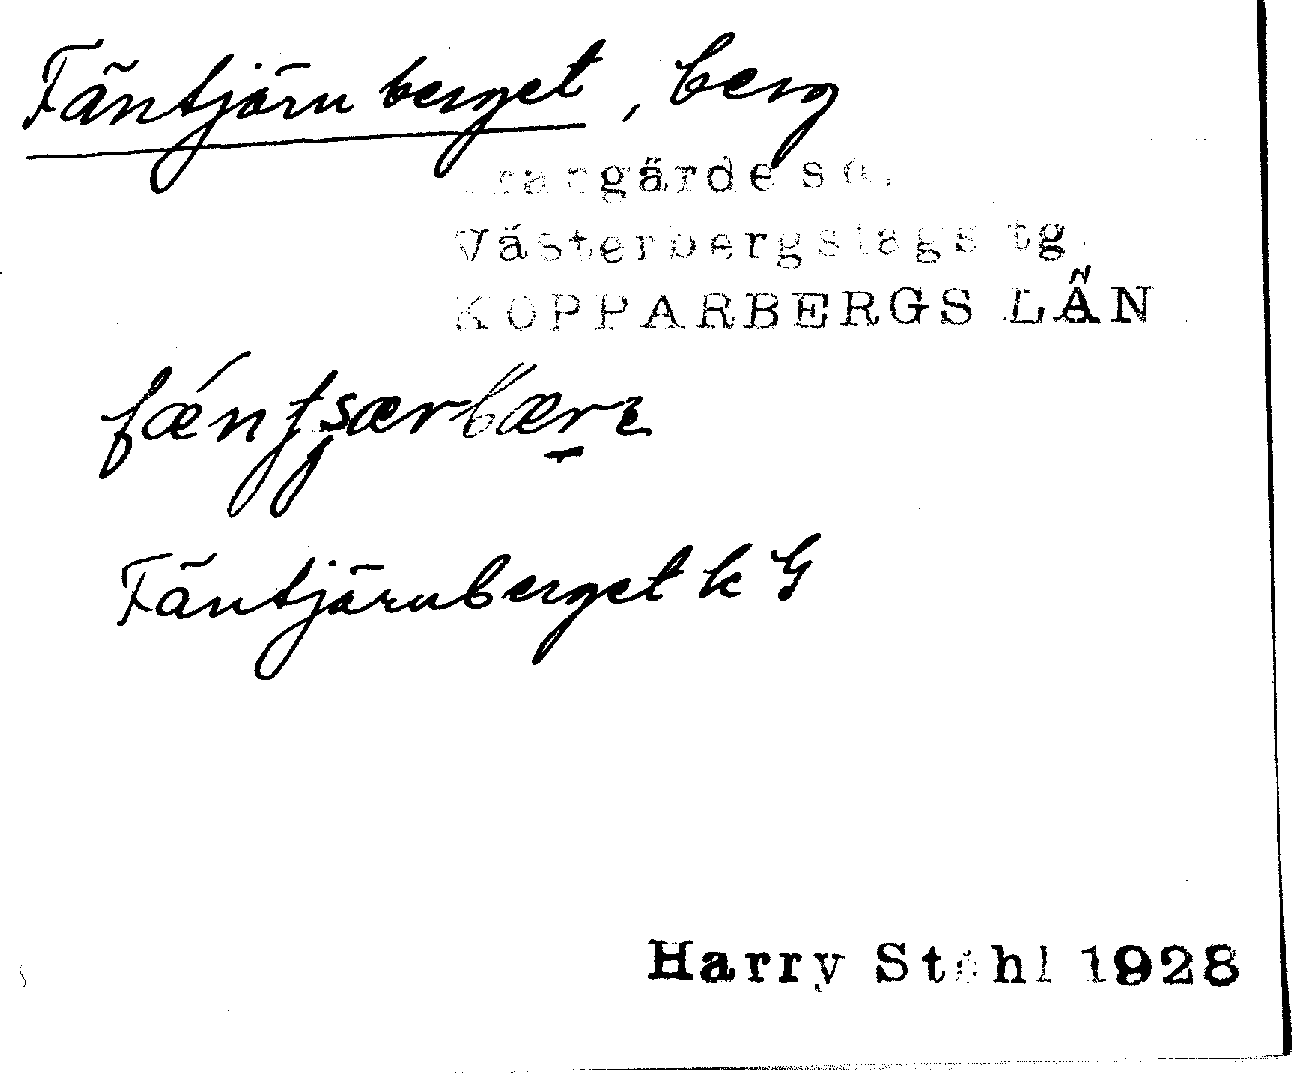 Fäntjärnberget, berg
Grangärde sn.
Västerbergslags tg.
KOPPARBERGS LÄN
Fäntjärnberget k G
Harry Ståhl 1928